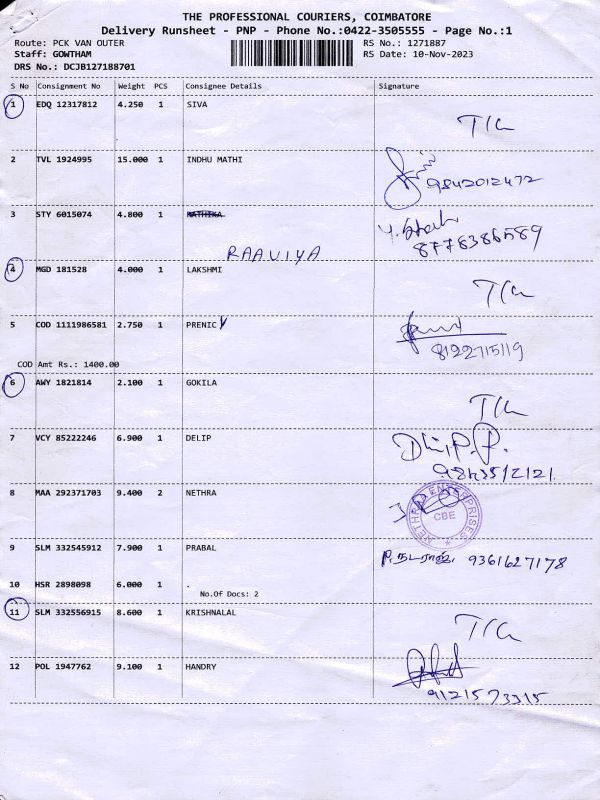 THE PROFESSIONAL COURIERS, COIMBATORE
Delivery Runsheet - PNP - Phone No.:0422-3505555 - Page No.:1
Route: PCK VAN OUTER RS No.: 1271887
Staff: GOWTHAM RS Date: 10-Nov-2023
DRS No.: DCJB127188701
S No Consignment No Weight PCS Consignee Details Signature
1 EDQ 12317812 4.250 1 SIVA
2 TVL 1924995 15.000 1 INDHU MATHI
9842012472
3 STY 6015074 4.800 1 MATHIKA
8778386589
RAAVIYA
4 MGD 181528 4.000 1 LAKSHMI
5 COD 1111986581 2.750 1 PRENICY
8122715119
COD Amt Rs.: 1400.00
6 AWY 1821814 2.100 1 GOKILA
7 VCY 85222246 6.900 1 DELIP
8 MAA 292371703 9.400 2 NETHRA
NETHRA ENTERPRISES
CBE
9 SLM 332545912 7.900 1 PRABAL
P. நடராஜ். 9361627178
10 HSR 2898098 6.000 1 .
No.Of Docs: 2
11 SLM 332556915 8.600 1 KRISHNALAL
12 POL 1947762 9.100 1 HANDRY
9121573315